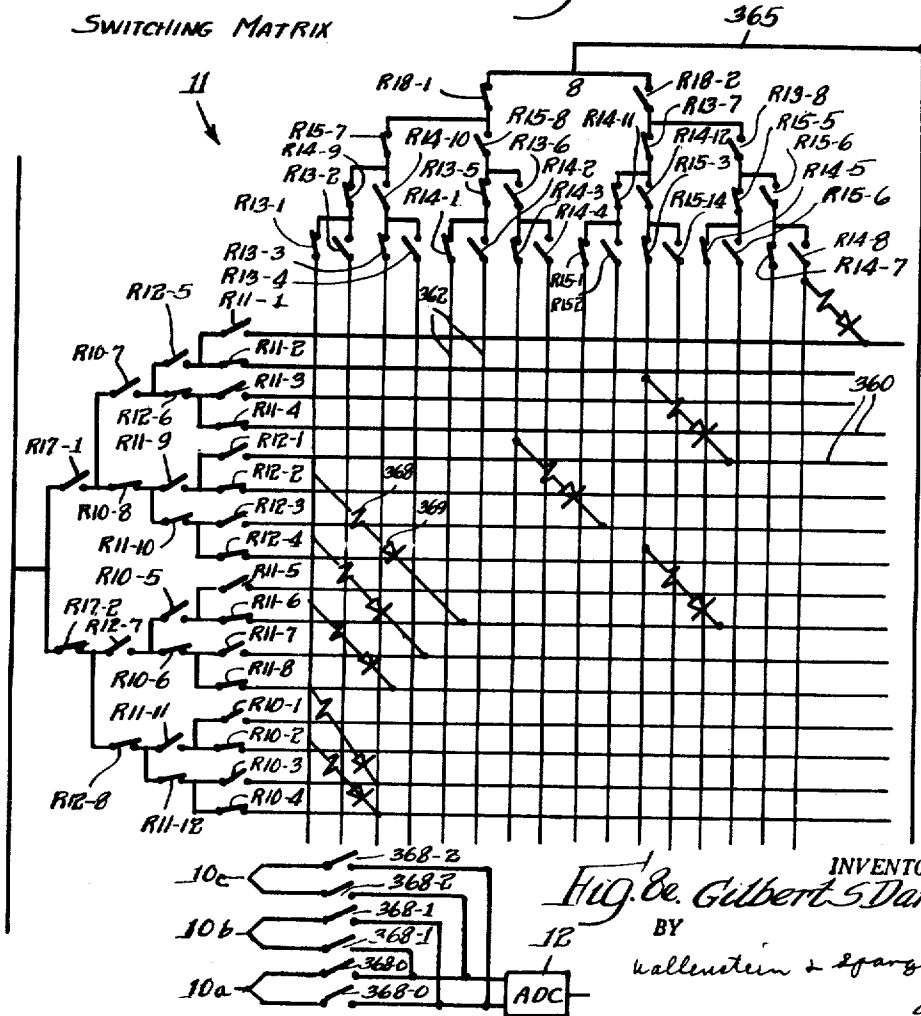 SWITCHING MATRIX
365
11
R18-1
8
R18-2
R13-7
R13-8
R15-7
R14-9
R13-2
R14-10
R15-8
R13-6
R14-11
R14-12
R15-5
R15-6
R13-1
R13-5
R14-1
R14-2
R14-3
R14-4
R15-3
R15-14
R14-5
R15-6
R13-3
R13-4
R15-1
R152
R14-8
R14-7
R12-5
R11-1
362
R10-7
R11-2
R11-3
360
R12-6
R11-4
R11-9
R12-1
R17-1
R12-2
368
R10-8
R12-3
369
R11-10
R12-4
R10-5
R11-5
R17-2
R12-7
R11-6
R11-7
R10-6
R11-8
R11-11
R10-1
R10-2
R10-3
R12-8
R10-4
R11-12
10c
368-2
368-2
10b
368-1
368-1
10a
368-0
368-0
12
ADC
Fig. 8e.
INVENTO
Gilbert S Dan
BY
Wallenstein & Spang